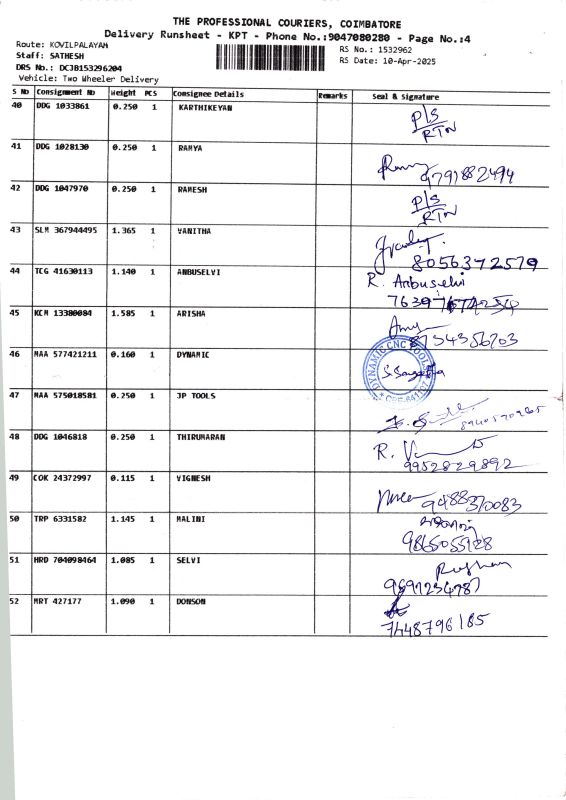 THE PROFESSIONAL COURIERS, COIMBATORE
Delivery Runsheet - KPT - Phone No.:9047080280 - Page No.:4
Route: KOVILPALAYAM
RS No.: 1532962
Staff: SATHESH
RS Date: 10-Apr-2025
DRS No.: DCJB153296204
Vehicle: Two Wheeler Delivery
S No Consignment No Weight PCS Consignee Details Remarks Seal & Signature
40 DDG 1033861 0.250 1 KARTHIKEYAN P/S RTN
41 DDG 1028130 0.250 1 RAMYA 9791882494
42 DDG 1047970 0.250 1 RAMESH P/S RTN
43 SLM 367944495 1.365 1 VANITHA 8056372579
44 TCG 41630113 1.140 1 ANBUSELVI R. Anbuselvi
45 KCM 13380084 1.585 1 ARISHA
46 MAA 577421211 0.160 1 DYNAMIC DYNAMIC CNC TOOLS
47 MAA 575018581 0.250 1 JP TOOLS
48 DDG 1046818 0.250 1 THIRUMARAN 9952829892
49 COK 24372997 0.115 1 VIGNESH 9488370083
50 TRP 6331582 1.145 1 MALINI 9865055128
51 HRD 704098464 1.085 1 SELVI
52 MRT 427177 1.090 1 DONSON 7448796185